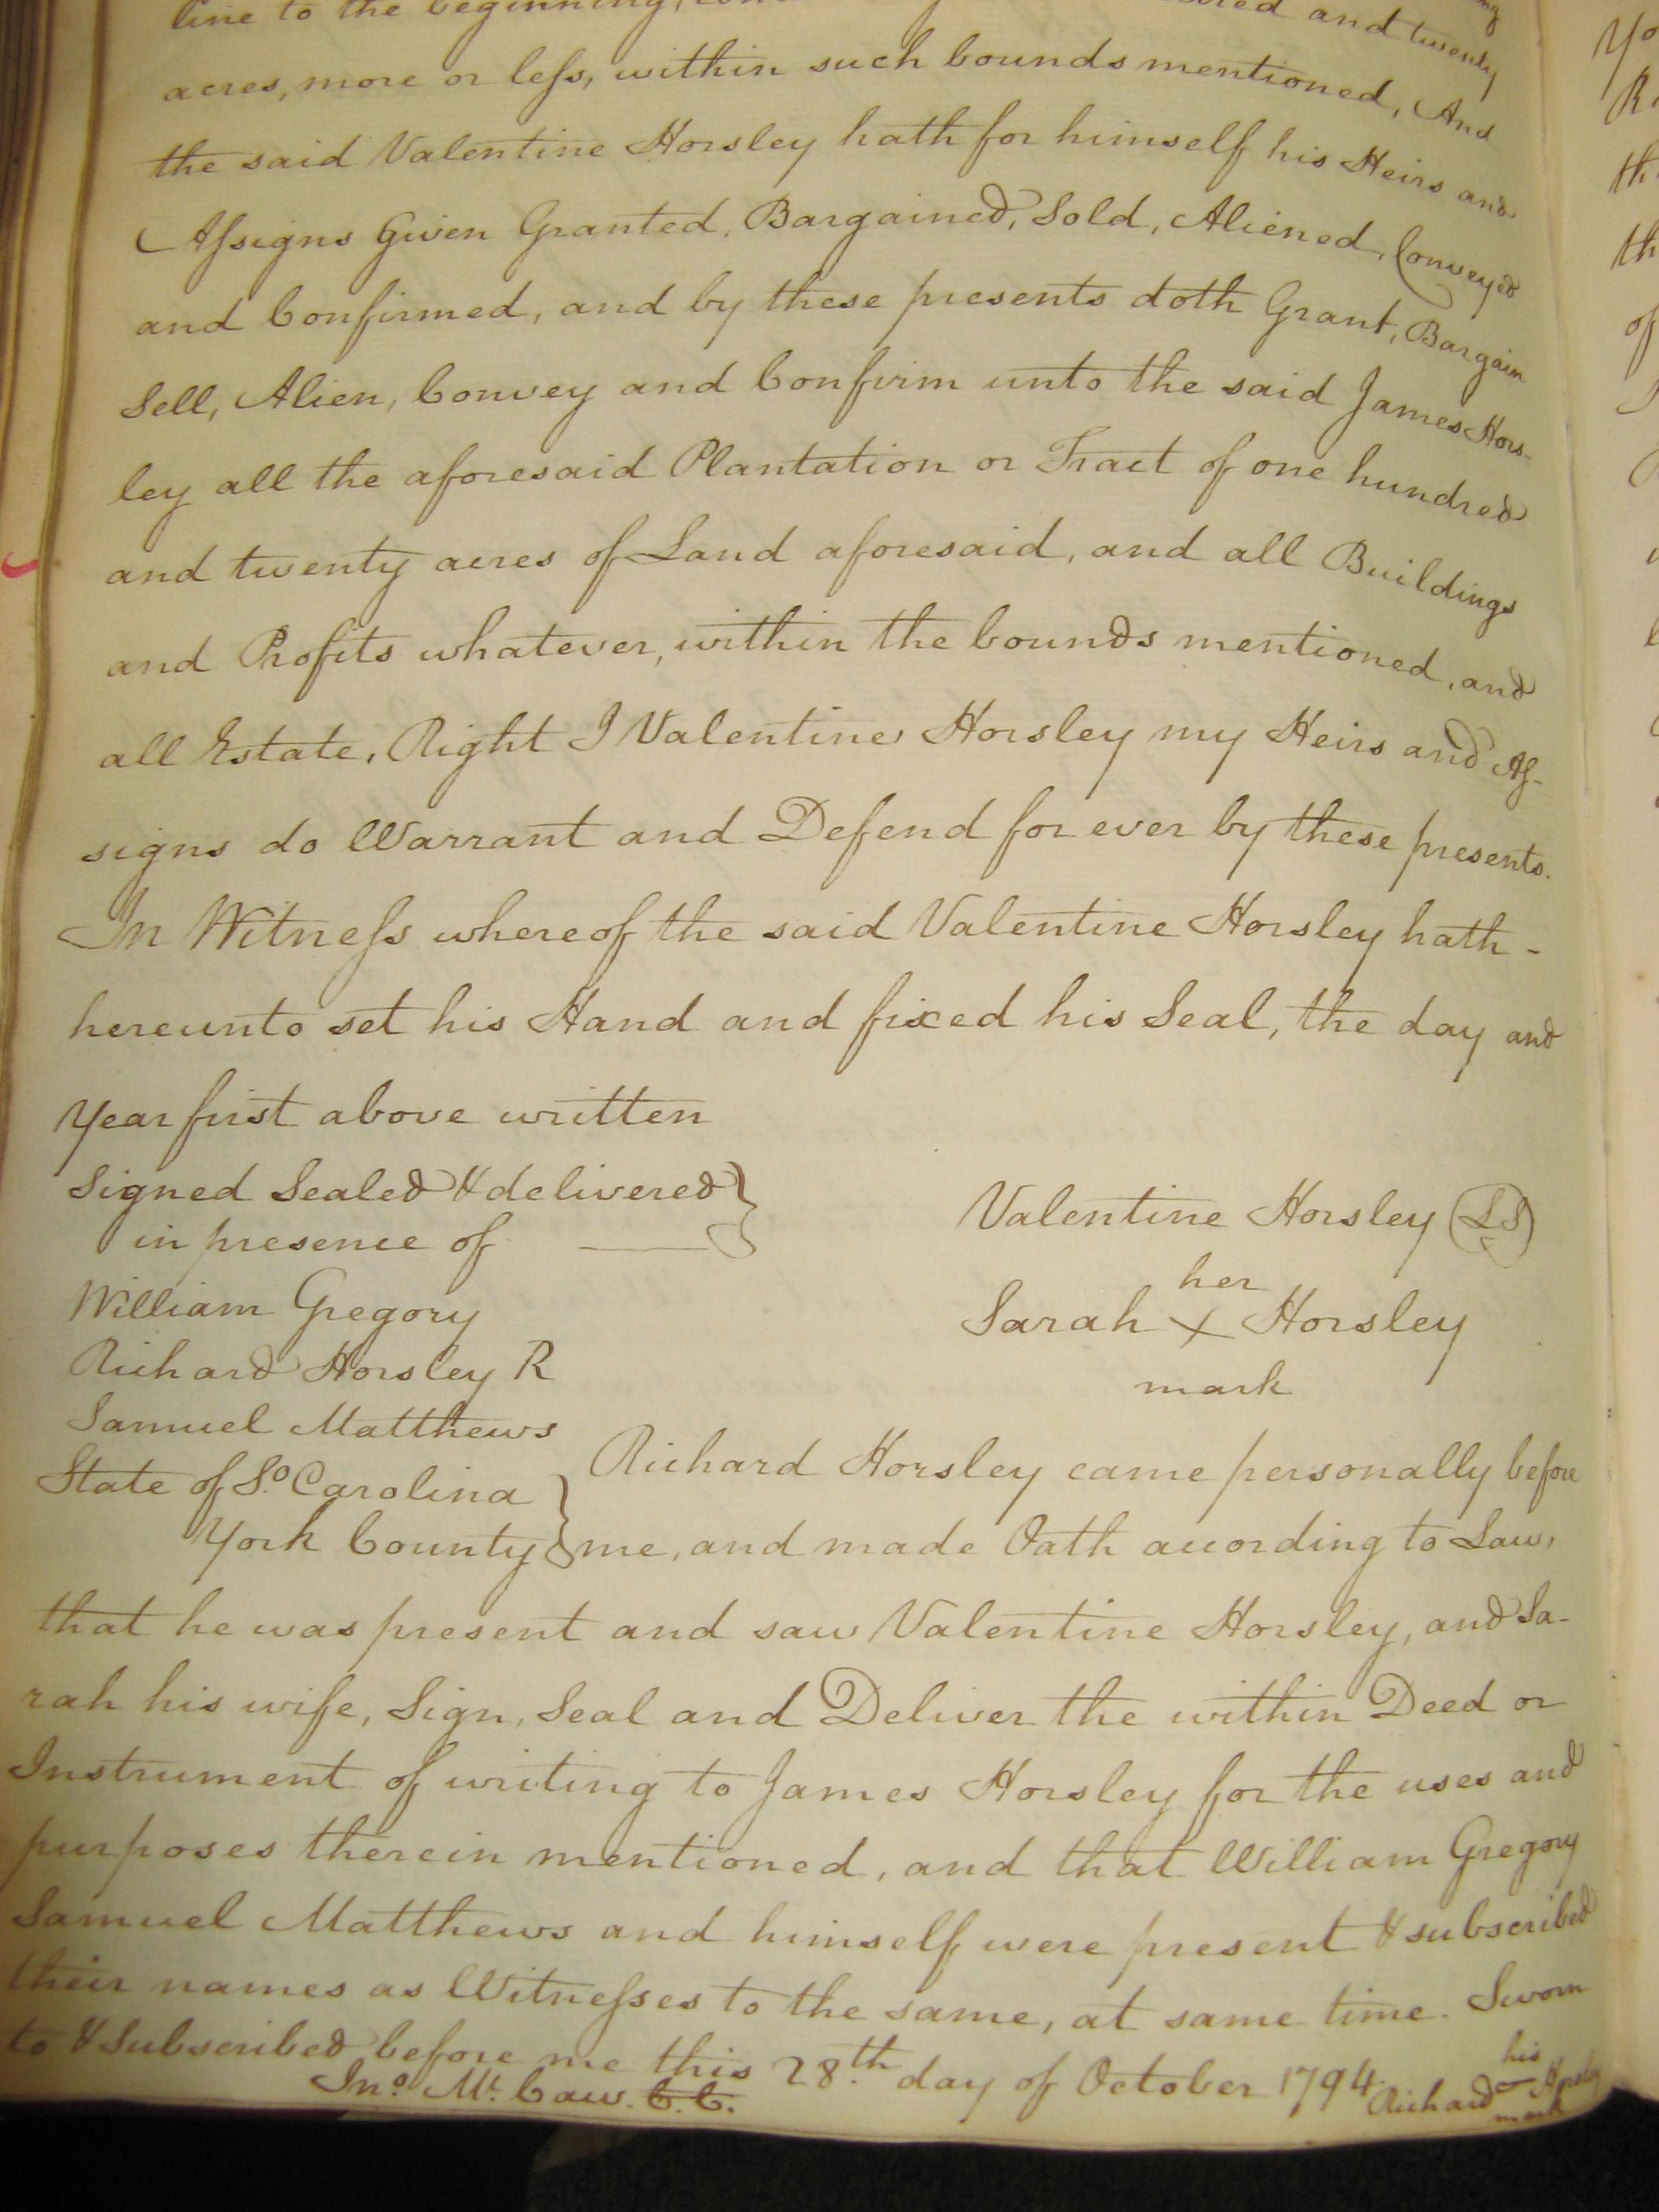 line to the beginning, and twenty
acres, more or leſs, within such bounds mentioned, And
the said Valentine Horsley hath for himself his Heirs and
Aſsigns Given Granted, Bargained, Sold, Aliened, Conveyed
and Confirmed, and by these presents doth Grant, Bargain
Sell, Alien, Convey and Confirm unto the said James Hors-
ley all the aforesaid Plantation or Tract of one hundred
and twenty acres of Land aforesaid, and all Buildings
and Profits whatever, within the bounds mentioned, and
all Estate, Right I Valentine Horsley my Heirs and Aſ-
signs do Warrant and Defend for ever by these presents.
In Witneſs whereof the said Valentine Horsley hath -
hereunto set his Hand and fixed his Seal, the day and
Year first above written
Signed Sealed & delivered
in presence of
Valentine Horsley (LS)
her
Sarah X Horsley
mark
William Gregory
Richard Horsley R
Samuel Matthews
State of So. Carolina
York County
Richard Horsley came personally before
me, and made Oath according to Law,
that he was present and saw Valentine Horsley, and Sa-
rah his wife, Sign, Seal and Deliver the within Deed or
Instrument of writing to James Horsley for the uses and
purposes therein mentioned, and that William Gregory
Samuel Matthews and himself were present & subscribed
their names as Witneſses to the same, at same time. Sworn
to & Subscribed before me this 28.th day of October 1794
his
Richard Horsley
mark
Jno. Mc. Caw. C.C.